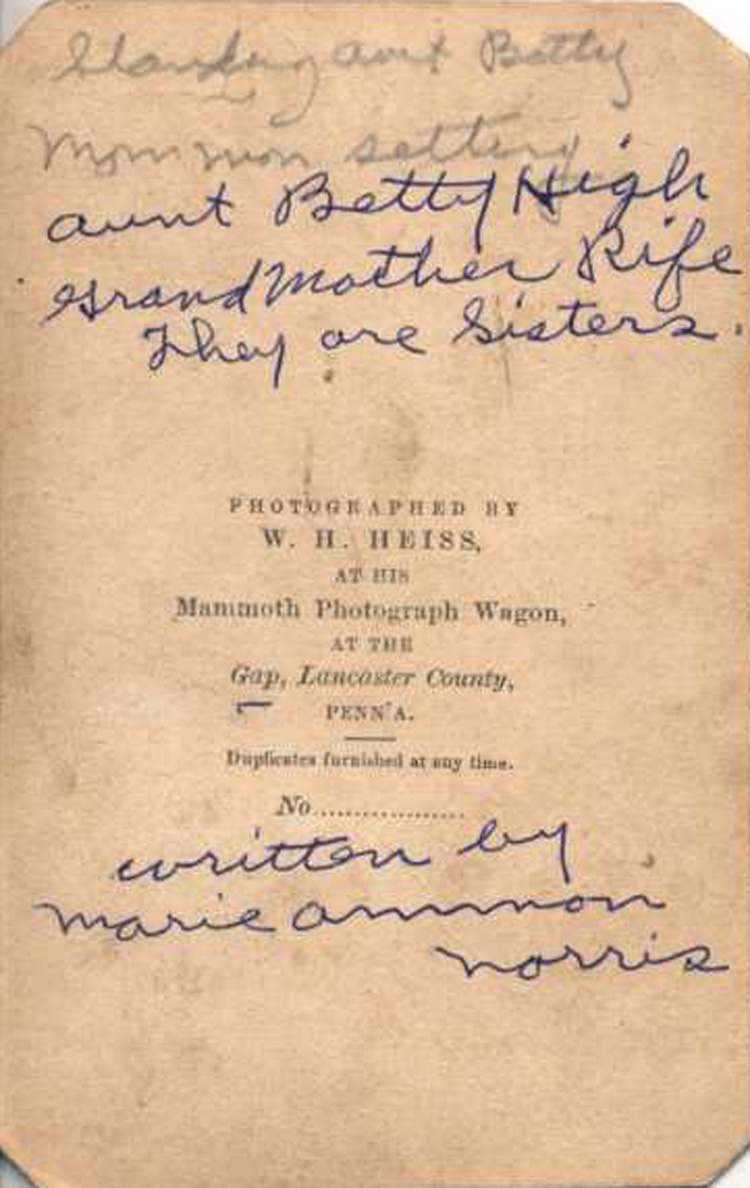 Standing aunt Betty
Mommon setting
aunt Betty High
Grandmother Rife
They are Sisters.
PHOTOGRAPHED BY
W. H. HEISS,
AT HIS
Mammoth Photograph Wagon,
AT THE
Gap, Lancaster County,
PENN'A.
Duplicates furnished at any time.
No.................
written by
marie ammon
norris